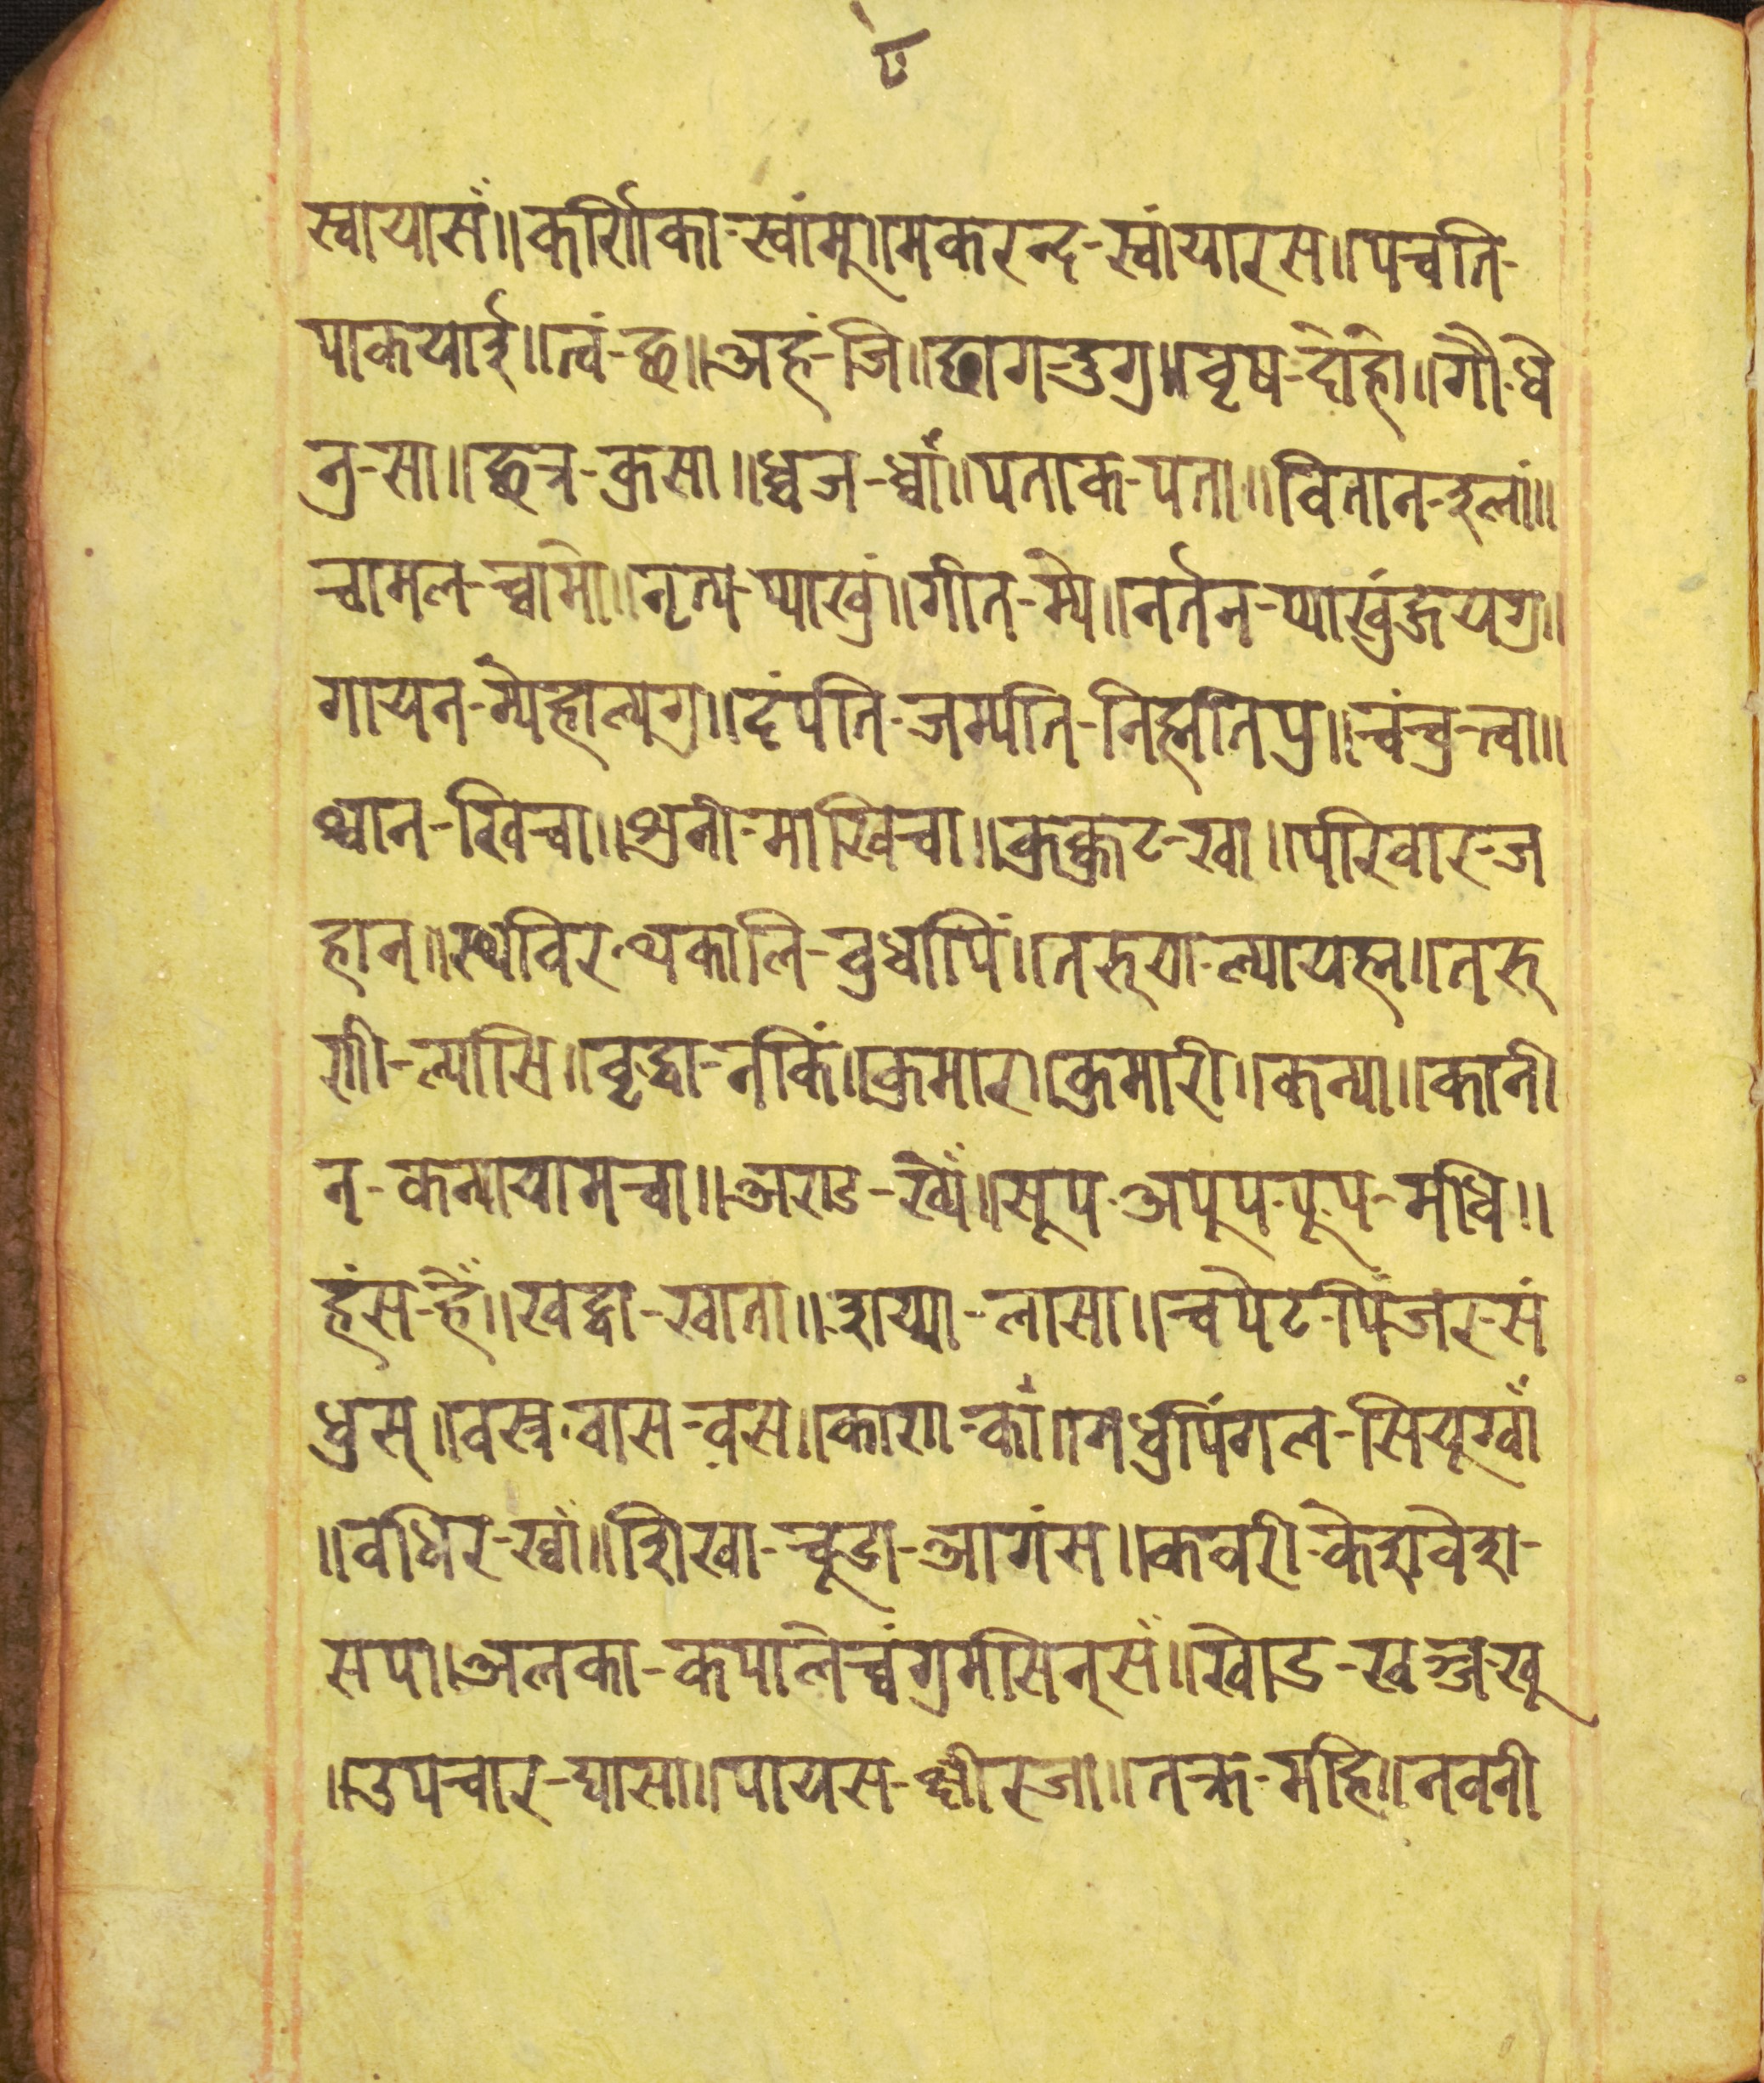 ८
स्वायासँ॥कर्णिका-स्वांमू॥मकरन्द-स्वांयारस॥पचति-
पाकयाई॥त्वं-छ॥अहं-जि॥छाग-दुगु॥वृष-दोंहो॥गौ-धे
नु-सा॥छत्र-कुसा॥ध्वज-ध्वाँ॥पताक-पता॥वितान-इलां॥
चामल-च्वामो॥नृत्य-प्याखुं॥गीत-म्ये॥नर्तन-प्याखुंहुयगु॥
गायन-म्येहाल्यगु॥दंपति-जम्पति-निह्मतिपु॥चंचु-त्वा॥
श्वान-खिचा॥शुनी-माखिचा॥कुक्कुट-खा॥परिवार-ज
हान्॥स्थविर-थकालि-बुधापिं॥तरुण-ल्यायह्म॥तरु
णी-ल्यासि॥वृद्धा-नकिं॥कुमार॥कुमारी॥कन्या॥कानी
न-कन्यायामचा॥अराड-ख्येँ॥सूप-अपूप-पूप-मधि॥
हंस-हेँ॥खट्वा-खाता॥शय्या-लासा॥चपेट-पिंजर-सं
धुस्॥वस्त्र-वास-वस॥काण-काँ॥मधुपिंगल-सियूख्वाँ
॥वधिर-ख्वाँ॥शिखा-चूडा-आगंस॥कवरी-केशवेश-
सपा॥अलका-कपालेच्वंगुमसिनूसँ॥खोड-खञ्ज-खू
॥उपचार-घासा॥पायस-क्षीरजा॥तक्र-महि॥नवनी